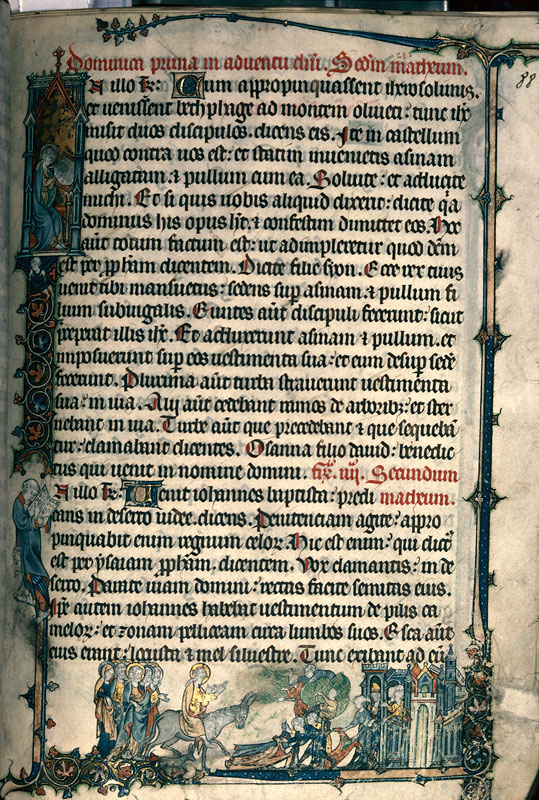 Dominica prima in adventu dñi. Scdm matheum.
88
In illo t̄r: Cum appropinquassent iherosolimis.
et uenissent bethphage ad montem oliueti: tunc ihc
misit duos discipulos. dicens eis. Ite in castellum
quod contra uos est: et statim inuenietis asinam
alligatam: ⁊ pullum cum ea. Soluite: et adducite
michi. Et si quis uobis aliquid dixerit: dicite q̄a
dominus his opus h̄t. ⁊ confestim dimittet eos. Hoc
aūt totum factum est: ut adimpleretur quod dc̄m
est per pp̄ham dicentem. Dicite filie syon. Ecce rex tuus
uenit tibi mansuetus: sedens sup̄ asinam. ⁊ pullum fi
lium subiugalis. Euntes aūt discipuli fecerunt: sicut
preperat illis ihc̄. Et adduxerunt asinam ⁊ pullum. et
imposuerunt sup̄ eos uestimenta sua: et eum desup̄ sede
fecerunt. Plurima aūt turba strauerunt uestimenta
sua: in uia. Alij aūt cedebant ramos de arboribꝫ: et ster
nebant in uia. Turbe aūt que precedebant ⁊ que sequebā
tur: clamabant dicentes. Osanna filio dauid: benedic
tus qui uenit in nomine domini. fr̄. iiij. Secundum
In illo t̄r: Uenit iohannes baptista: predi matheum.
cans in deserto iudee. dicens. Penitenciam agite: appro
pinquabit enim regnum celoꝝ. Hic est enim: qui dictꝰ
est per ysaiam pp̄ham. dicentem. Vox clamantis: in de
serto. Parate uiam domini: rectas facite semitas eius.
Ip̄e autem iohannes habebat uestimentum de pilis ca
meloꝝ: et zonam pelliceam circa lumbos suos. Esca aūt
eius erant: locusta ⁊ mel siluestre. Tunc exibant ad eū